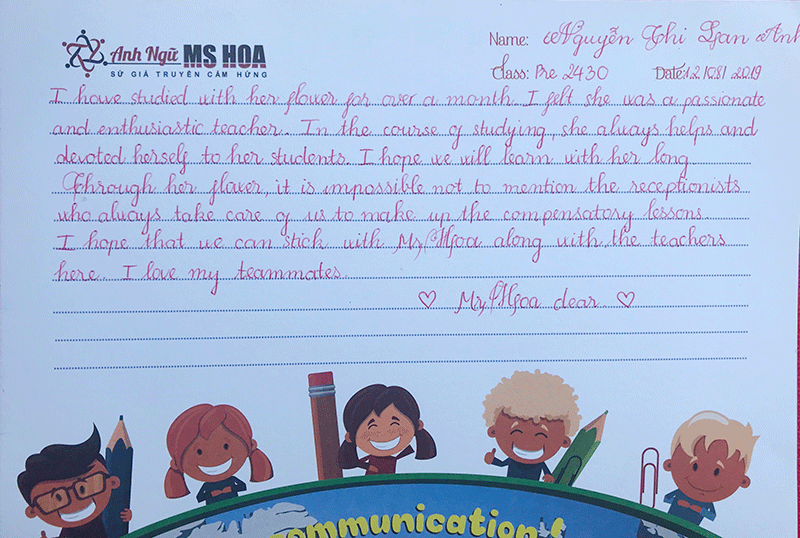 Anh Ngữ MS HOA
SỨ GIẢ TRUYỀN CẢM HỨNG
Name: Nguyễn Thi Lan Anh
Class: Pre 2430 Date: 12/08/2019
I have studied with her flower for over a month. I felt she was a passionate
and enthusiastic teacher. In the course of studying, she always helps and
devoted herself to her students. I hope we will learn with her long
Through her flower, it is impossible not to mention the receptionists
who always take care of us to make up the compensatory lessons
I hope that we can stick with Ms Hoa along with the teachers
here. I love my teammates.
♡ Ms Hoa dear. ♡
communication